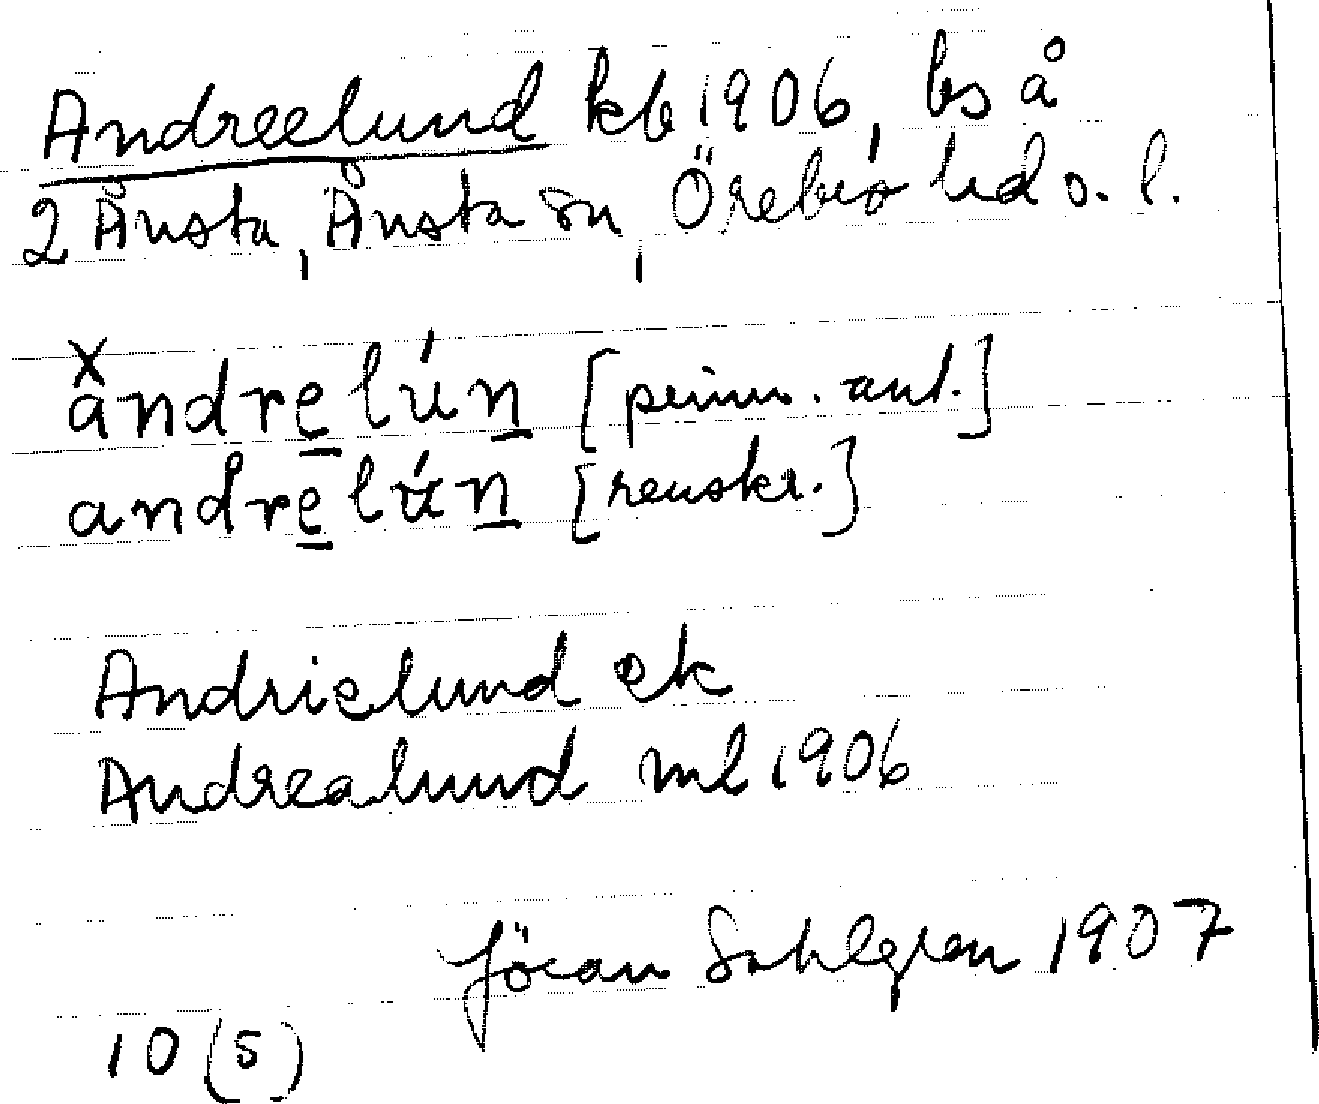 Andreelund kb 1906, ls å
2 Ånsta, Ånsta sn, Örebro hd o. l.
åndrelún [primär. ant.]
andrelún [renskr.]
Andrielund ek
Andrealund ml 1906
Jöran Sahlgren 1907
10 (5)